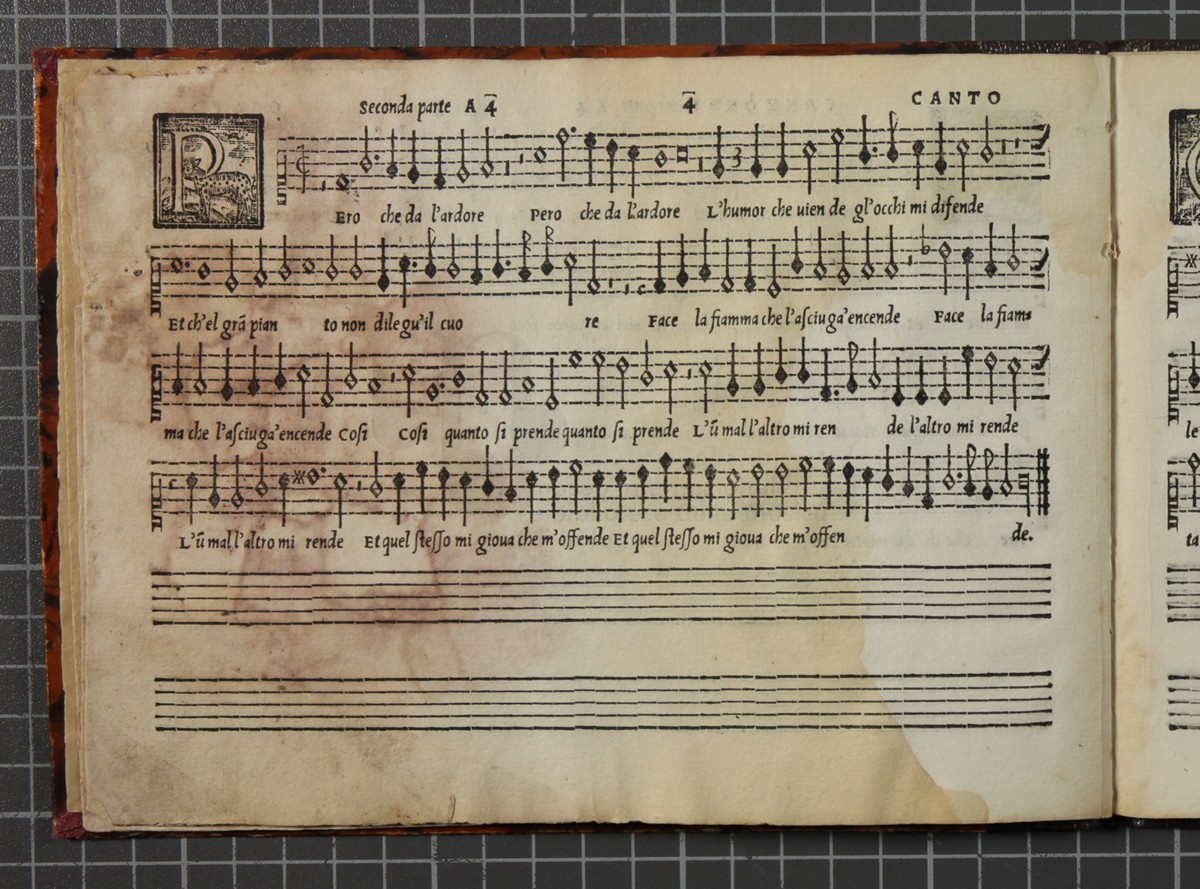 Seconda parte A 4̅ 4̅ CANTO
P
Ero che da l'ardore Pero che da l'ardore L'humor che uien de gl'occhi mi difende
Et ch'el grā pian to non dilegu'il cuo re Face la fiamma che l'asciuga'encende Face la fiam⸗
ma che l'asciuga'encende Cosi Cosi quanto si prende quanto si prende L'ū mal l'altro mi ren de l'altro mi rende
L'ū mal l'altro mi rende Et quel stesso mi gioua che m'offende Et quel stesso mi gioua che m'offen de.
le
ta